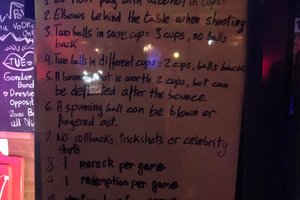 1. You must play with alcohol in cups
2. Elbows behind the table when shooting
3. Two balls in same cup = 3 cups, no balls
back
4. Two balls in different cups = 2 cups, balls back
5. A bounce shot is worth 2 cups, but can
be deflected after the bounce
6. A spinning ball can be blown or
fingered out.
7. No rollbacks, trickshots or celebrity
shots
8. 1 rerack per game
9. 1 redemption per game
VODKA
TUE
Gender
Band
Dresses
Opposite
All Ni